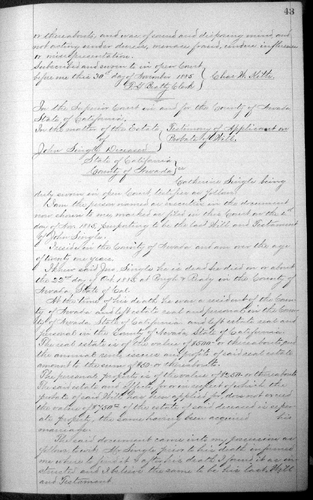 43
or thereabouts, and was of sound and disposing mind, and
not acting under duress, menace, fraud, undue influence
or misrepresentation.
Subscribed and sworn to in open Court
before me this 30th day of November 1885 Chas W. Kitts
Clerk
In the Superior Court in and for the County of Nevada
State of California.
In the matter of the Estate Testimony of Applicant on
Probate of Will.
John Single Deceased
State of California
County of Nevada ss
Catherine Single being
duly sworn in open Court testifies as follows
I am the person named as executrix in the document
now shown to me marked as filed in this Court on the
day of Nov 1885, purporting to be the last Will and Testament
of John Single.
I reside in the County of Nevada and am over the age
of twenty one years.
I knew said Jno Single he is dead he died on or about
the 22nd day of Oct 1885 at in the County of
Nevada State of Cal.
At the time of his death he was a resident of the Coun-
ty of Nevada and left estate real and personal in the Coun-
ty of Nevada State of California and left estate real and
personal in the County of Nevada State of California.
The real estate is of the value of $500 or thereabouts and
the annual rents issues and profits of said real estate
amount to the sum of or thereabouts.
The personal property is of the value of or thereabouts
The said estate and effects for or in respect of which the
probate of said Will has been applied for does not exceed
the value of of the estate of said deceased is
property, the same having been acquired
marriage
The said document came into my possession as
follows to wit: Mr Single prior to his death
me where to find it by his death I found it as
directed and I believe the same to be his last Will
and Testament